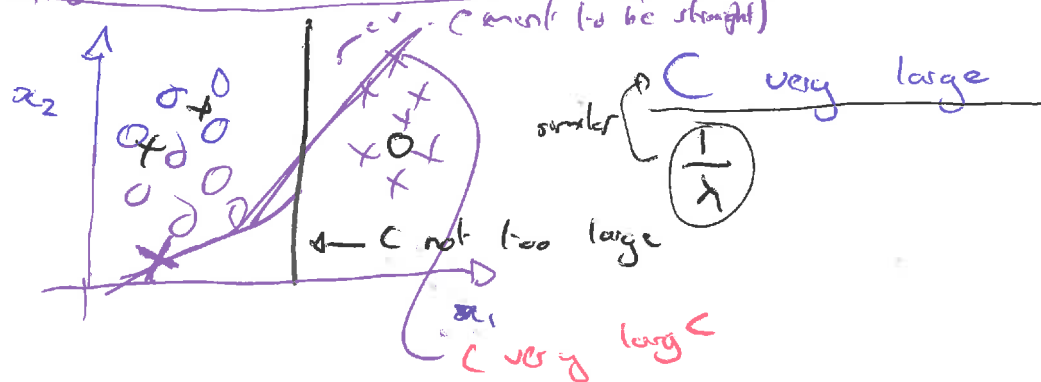 C ment to be straight)
x₂
C very large
similar
1
λ
C not too large
x₁
C very large